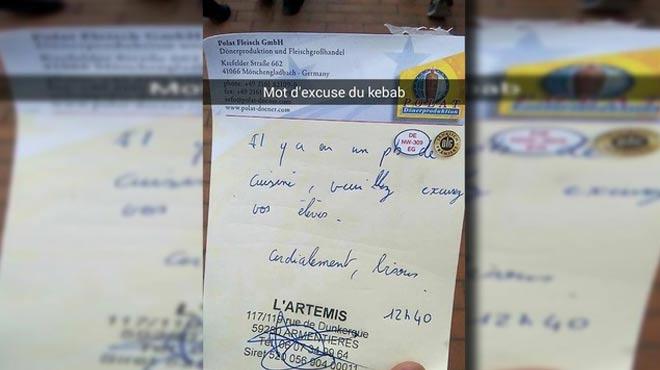 Polat Fleisch GmbH
Dönerproduktion und Fleischgroßhandel
Krefelder Straße 662
41066 Mönchengladbach - Germany
www.polat-doener.com
Mot d'excuse du kebab
POLAT
Dönerproduktion
DE
NW-309
EG
Il y a eu un pb de
cuisine, veuillez excusez
vos élèves.
Cordialement, bisous.
12h40
L'ARTEMIS
117/119 rue de Dunkerque
59280 ARMENTIERES
Siret 520 056 904 00011